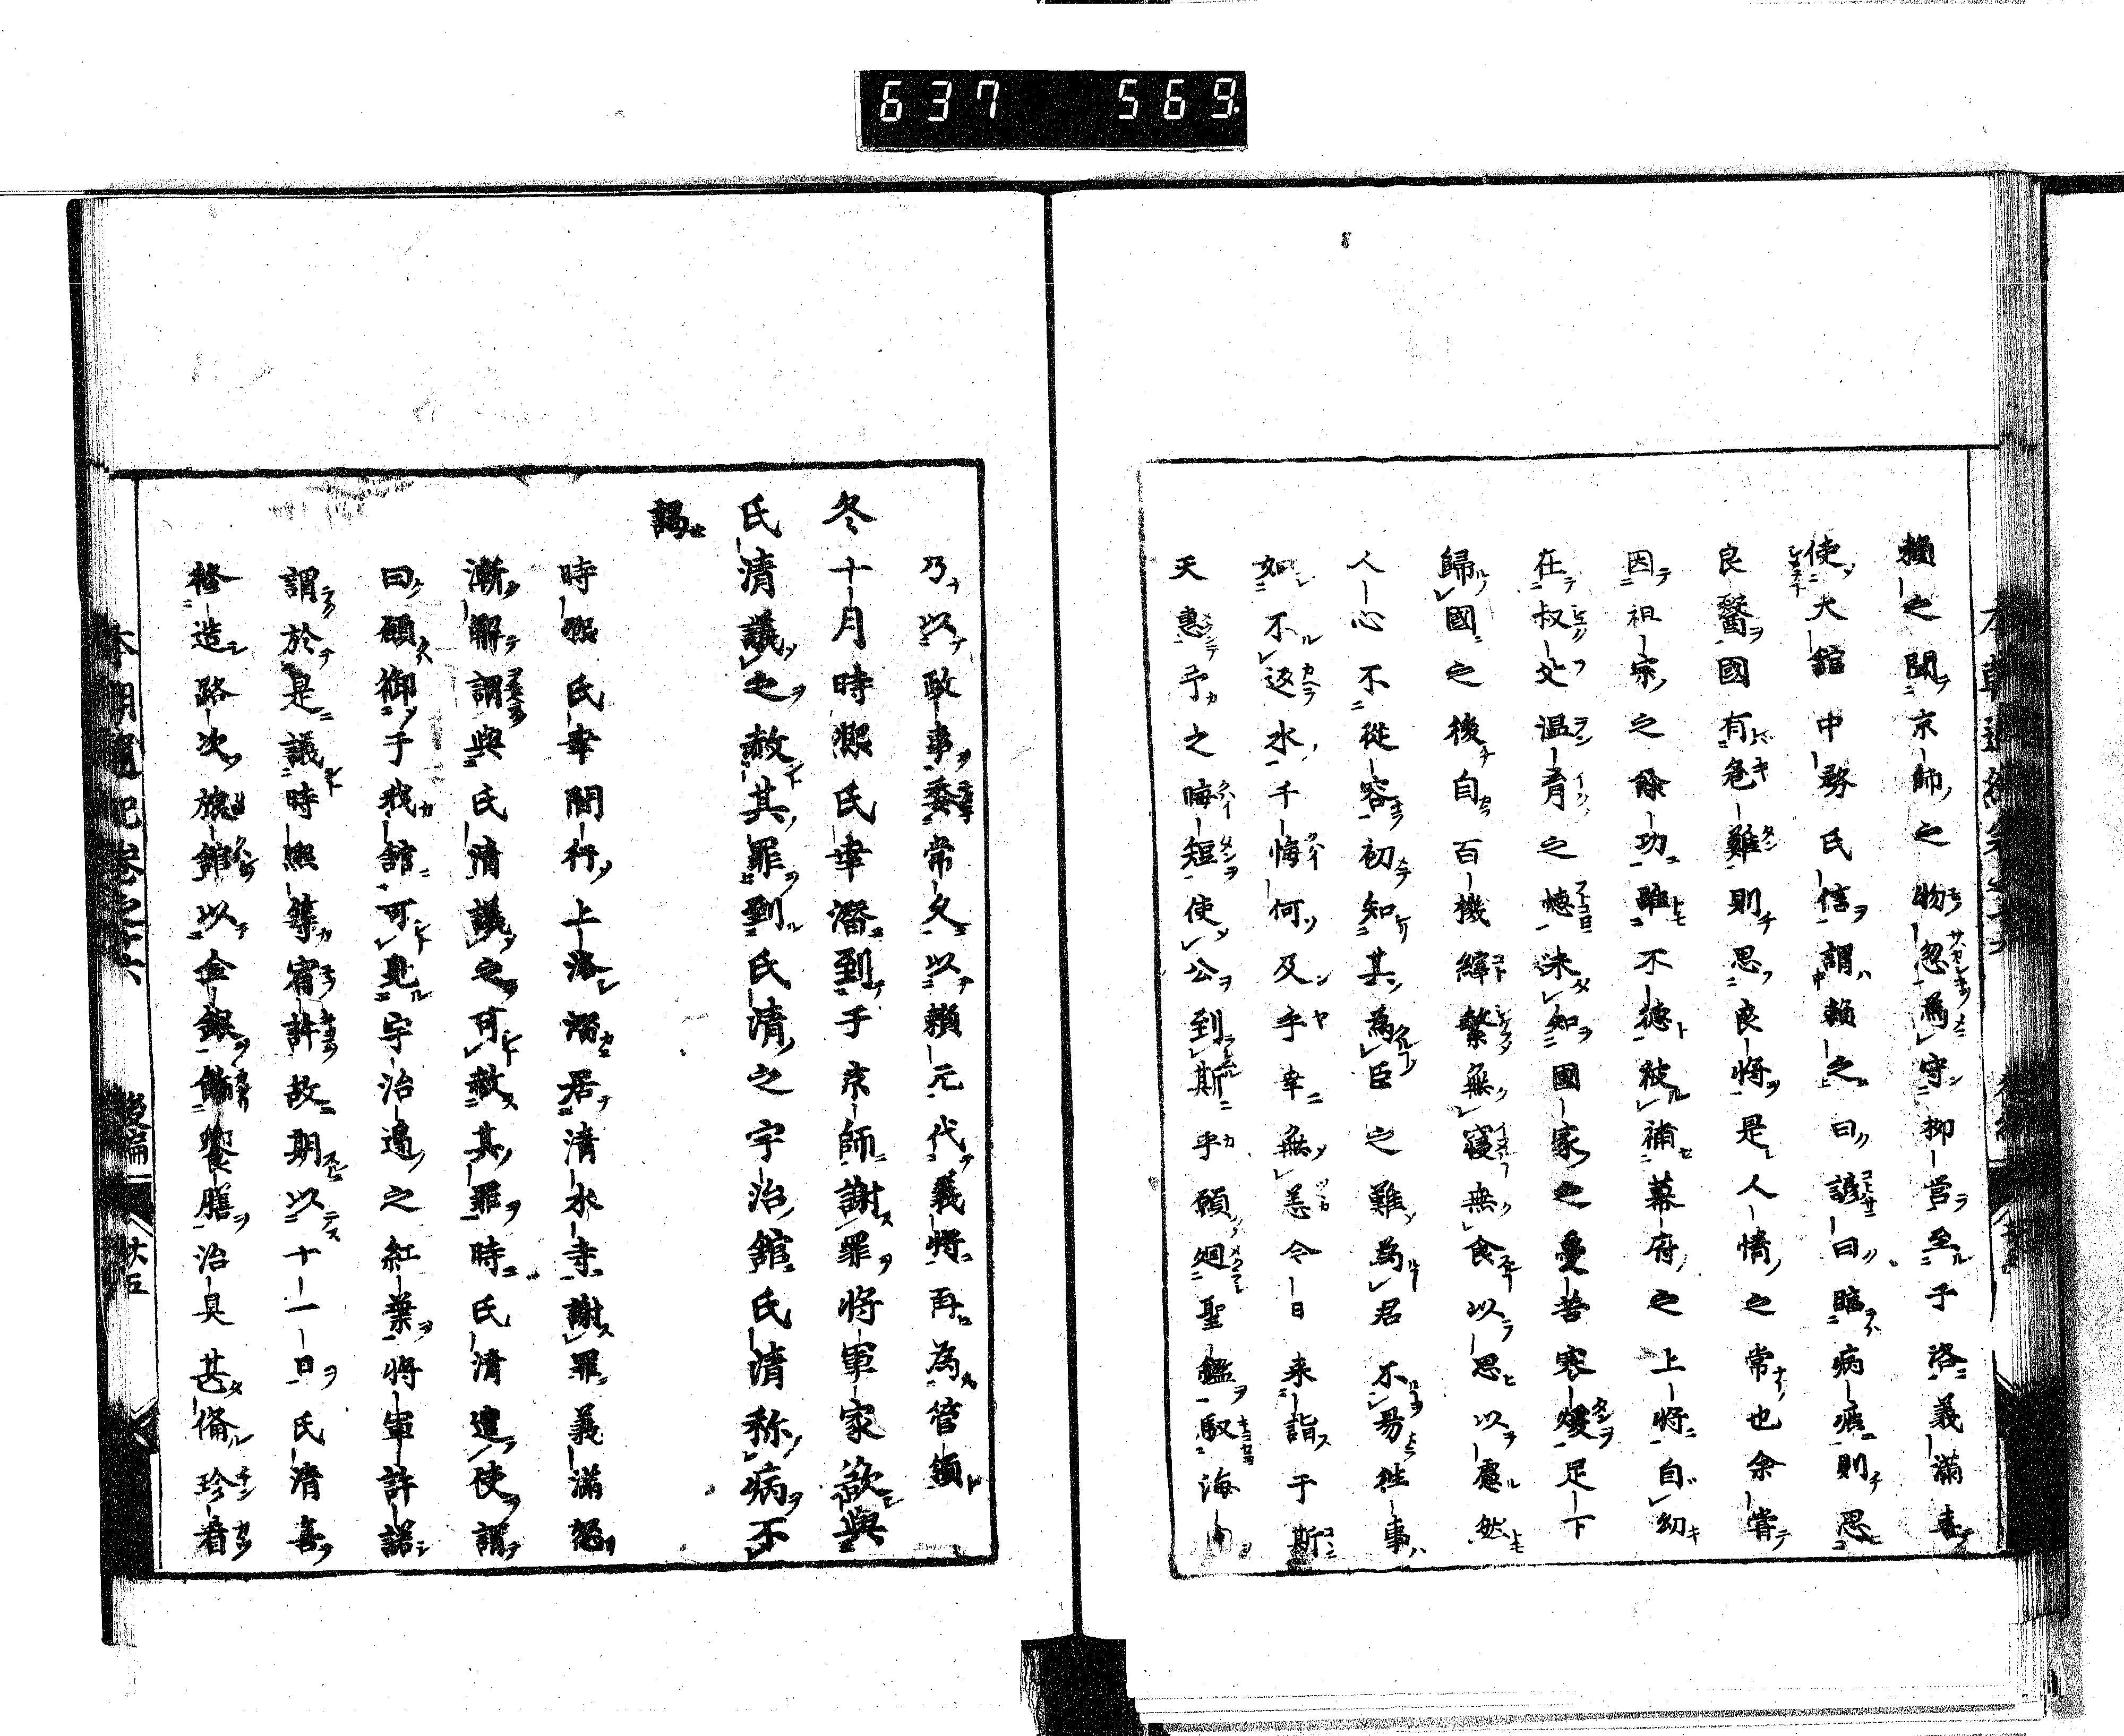 637 569
頼之聞京師之物忽為守抑営至予洛義満喜
使大舘中務氏信謂頼之曰諺曰臨病疾則思
良醫國有危難則思良将是人情之常也余甞
因祖宗之餘功雖不徳被補幕府之上将自幼
在叔父温育之懐未知國家之憂苦寒煖足下
歸國之後自百機縡繁無寝無食以思以慮然
人心不從容初知其為臣之難為君不易往事
如不返水千悔何及乎幸無恙今日来詣于斯
天惠予之晦短使公到斯乎願廻聖鑑馭海内
乃以政事委常久以頼元代義将再為管領
冬十月時熈氏幸潜到于京師謝罪将軍家欲與
氏清議之赦其罪到氏清之宇治舘氏清称病不
謁
時熈氏幸間行上洛濳居清水寺謝罪義満怒
漸解謂與氏清議之可赦其罪時氏清遣使謂
曰願御于我舘可見宇治邉之紅葉将軍許諾
謂於是議時熈等宥許故期以十一日氏清喜
修造路次旅館以金銀飾饗膳治具甚俻珍肴
本朝通紀巻之六 後編